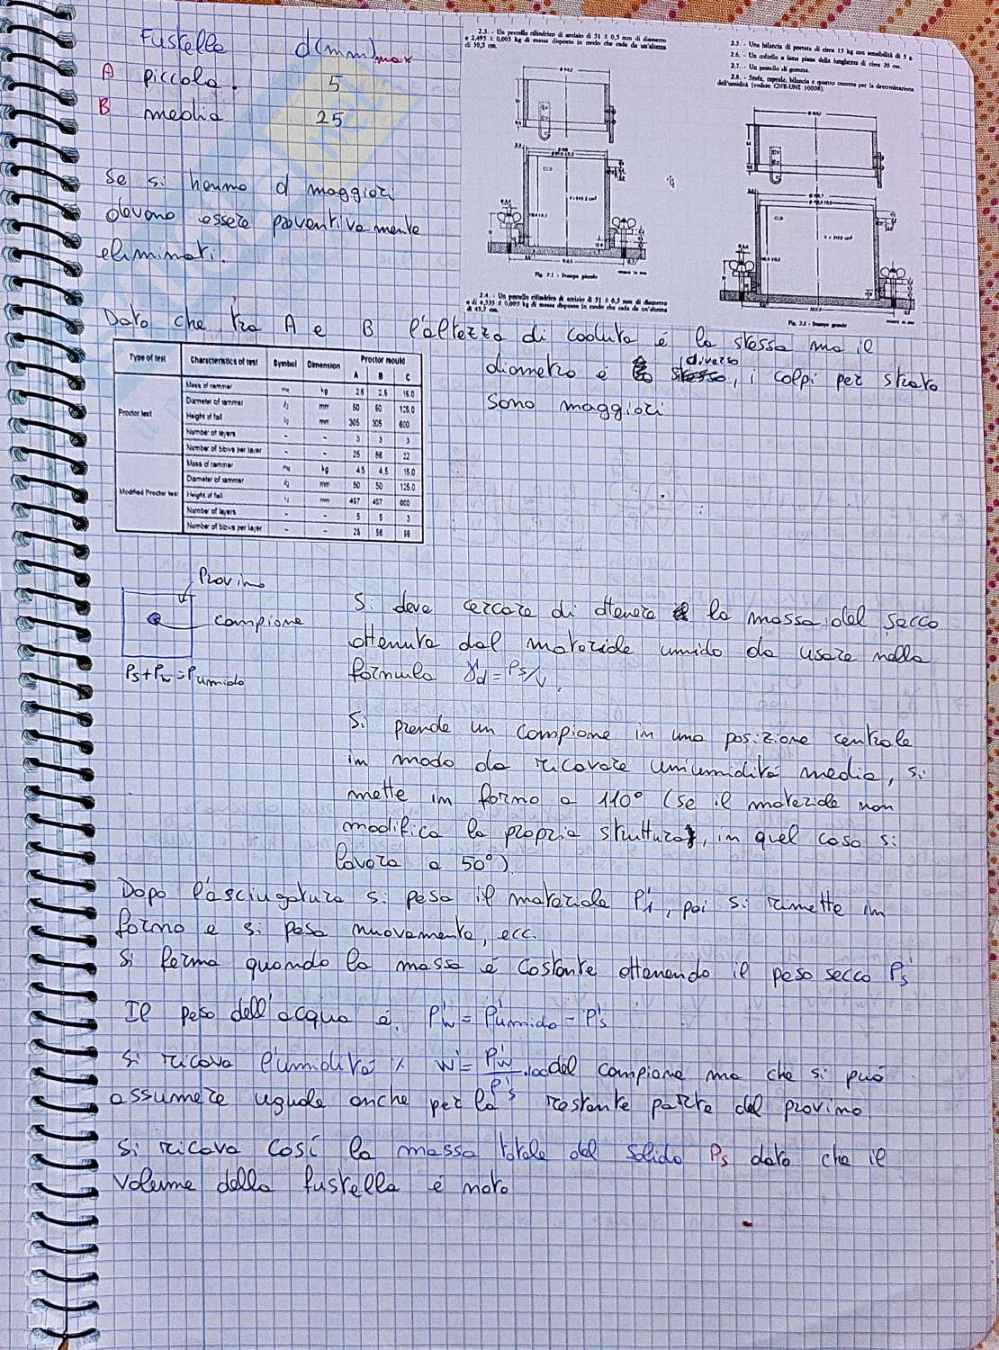 Fustelle d(mm)max
A piccola. 5
B media 25
Se si hanno d maggiori
devono essere preventivamente
eliminati.
2.3. - Un pestello cilindrico di acciaio di 51 ± 0,5 mm di diametro
e 2,495 ± 0,005 kg di massa disposto in modo che cada da un'altezza
di 30,5 cm.
Fig. 2.1 - Stampo piccolo
2.4. - Un pestello cilindrico di acciaio di 51 ± 0,5 mm di diametro
e di 4,535 ± 0,005 kg di massa disposto in modo che cada da un'altezza
di 45,7 cm.
2.5. - Una bilancia di portata di circa 15 kg con sensibilità di 5 g
2.6. - Un coltello a lama piana della lunghezza di circa 30 cm.
2.7. - Un pestello di gomma.
2.8. - Stufa, capsule, bilancia e quanto occorre per la determinazione
dell'umidità (vedere CNR-UNI 10008).
Fig. 2.2 - Stampo grande
Dato che tra A e B l'altezza di caduta è la stessa ma il
diametro è diverso, i colpi per strato
sono maggiori
Type of test Characteristics of test Symbol Dimension Proctor mould
A B C
Proctor test
Mass of rammer kg 2.5 2.5 15.0
Diameter of rammer mm 50 50 125.0
Height of fall mm 305 305 600
Number of layers - - 3 3 3
Number of blows per layer - - 25 56 22
Modified Proctor test
Mass of rammer kg 4.5 4.5 15.0
Diameter of rammer mm 50 50 125.0
Height of fall mm 457 457 600
Number of layers - - 5 5 3
Number of blows per layer - - 25 56 98
Provino
campione
Ps+Pw=Pumido
Si deve cercare di ottenere la massa del secco
ottenuta dal materiale umido da usare nella
formula γd=Ps/V.
Si prende un campione in una posizione centrale
in modo da ricavare un'umidità media, si
mette in forno a 110° (se il materiale non
modifica la propria struttura, in quel caso si
lavora a 50°).
Dopo l'asciugatura si pesa il materiale P'1, poi si rimette in
forno e si pesa nuovamente, ecc.
Si ferma quando la massa è costante ottenendo il peso secco P's
Il peso dell'acqua è. P'w = P'umido - P's
Si ricava l'umidità % w'= P'w/P's .100 del campione ma che si può
assumere uguale anche per la restante parte del provino
Si ricava così la massa totale del solido Ps dato che il
volume della fustella è noto